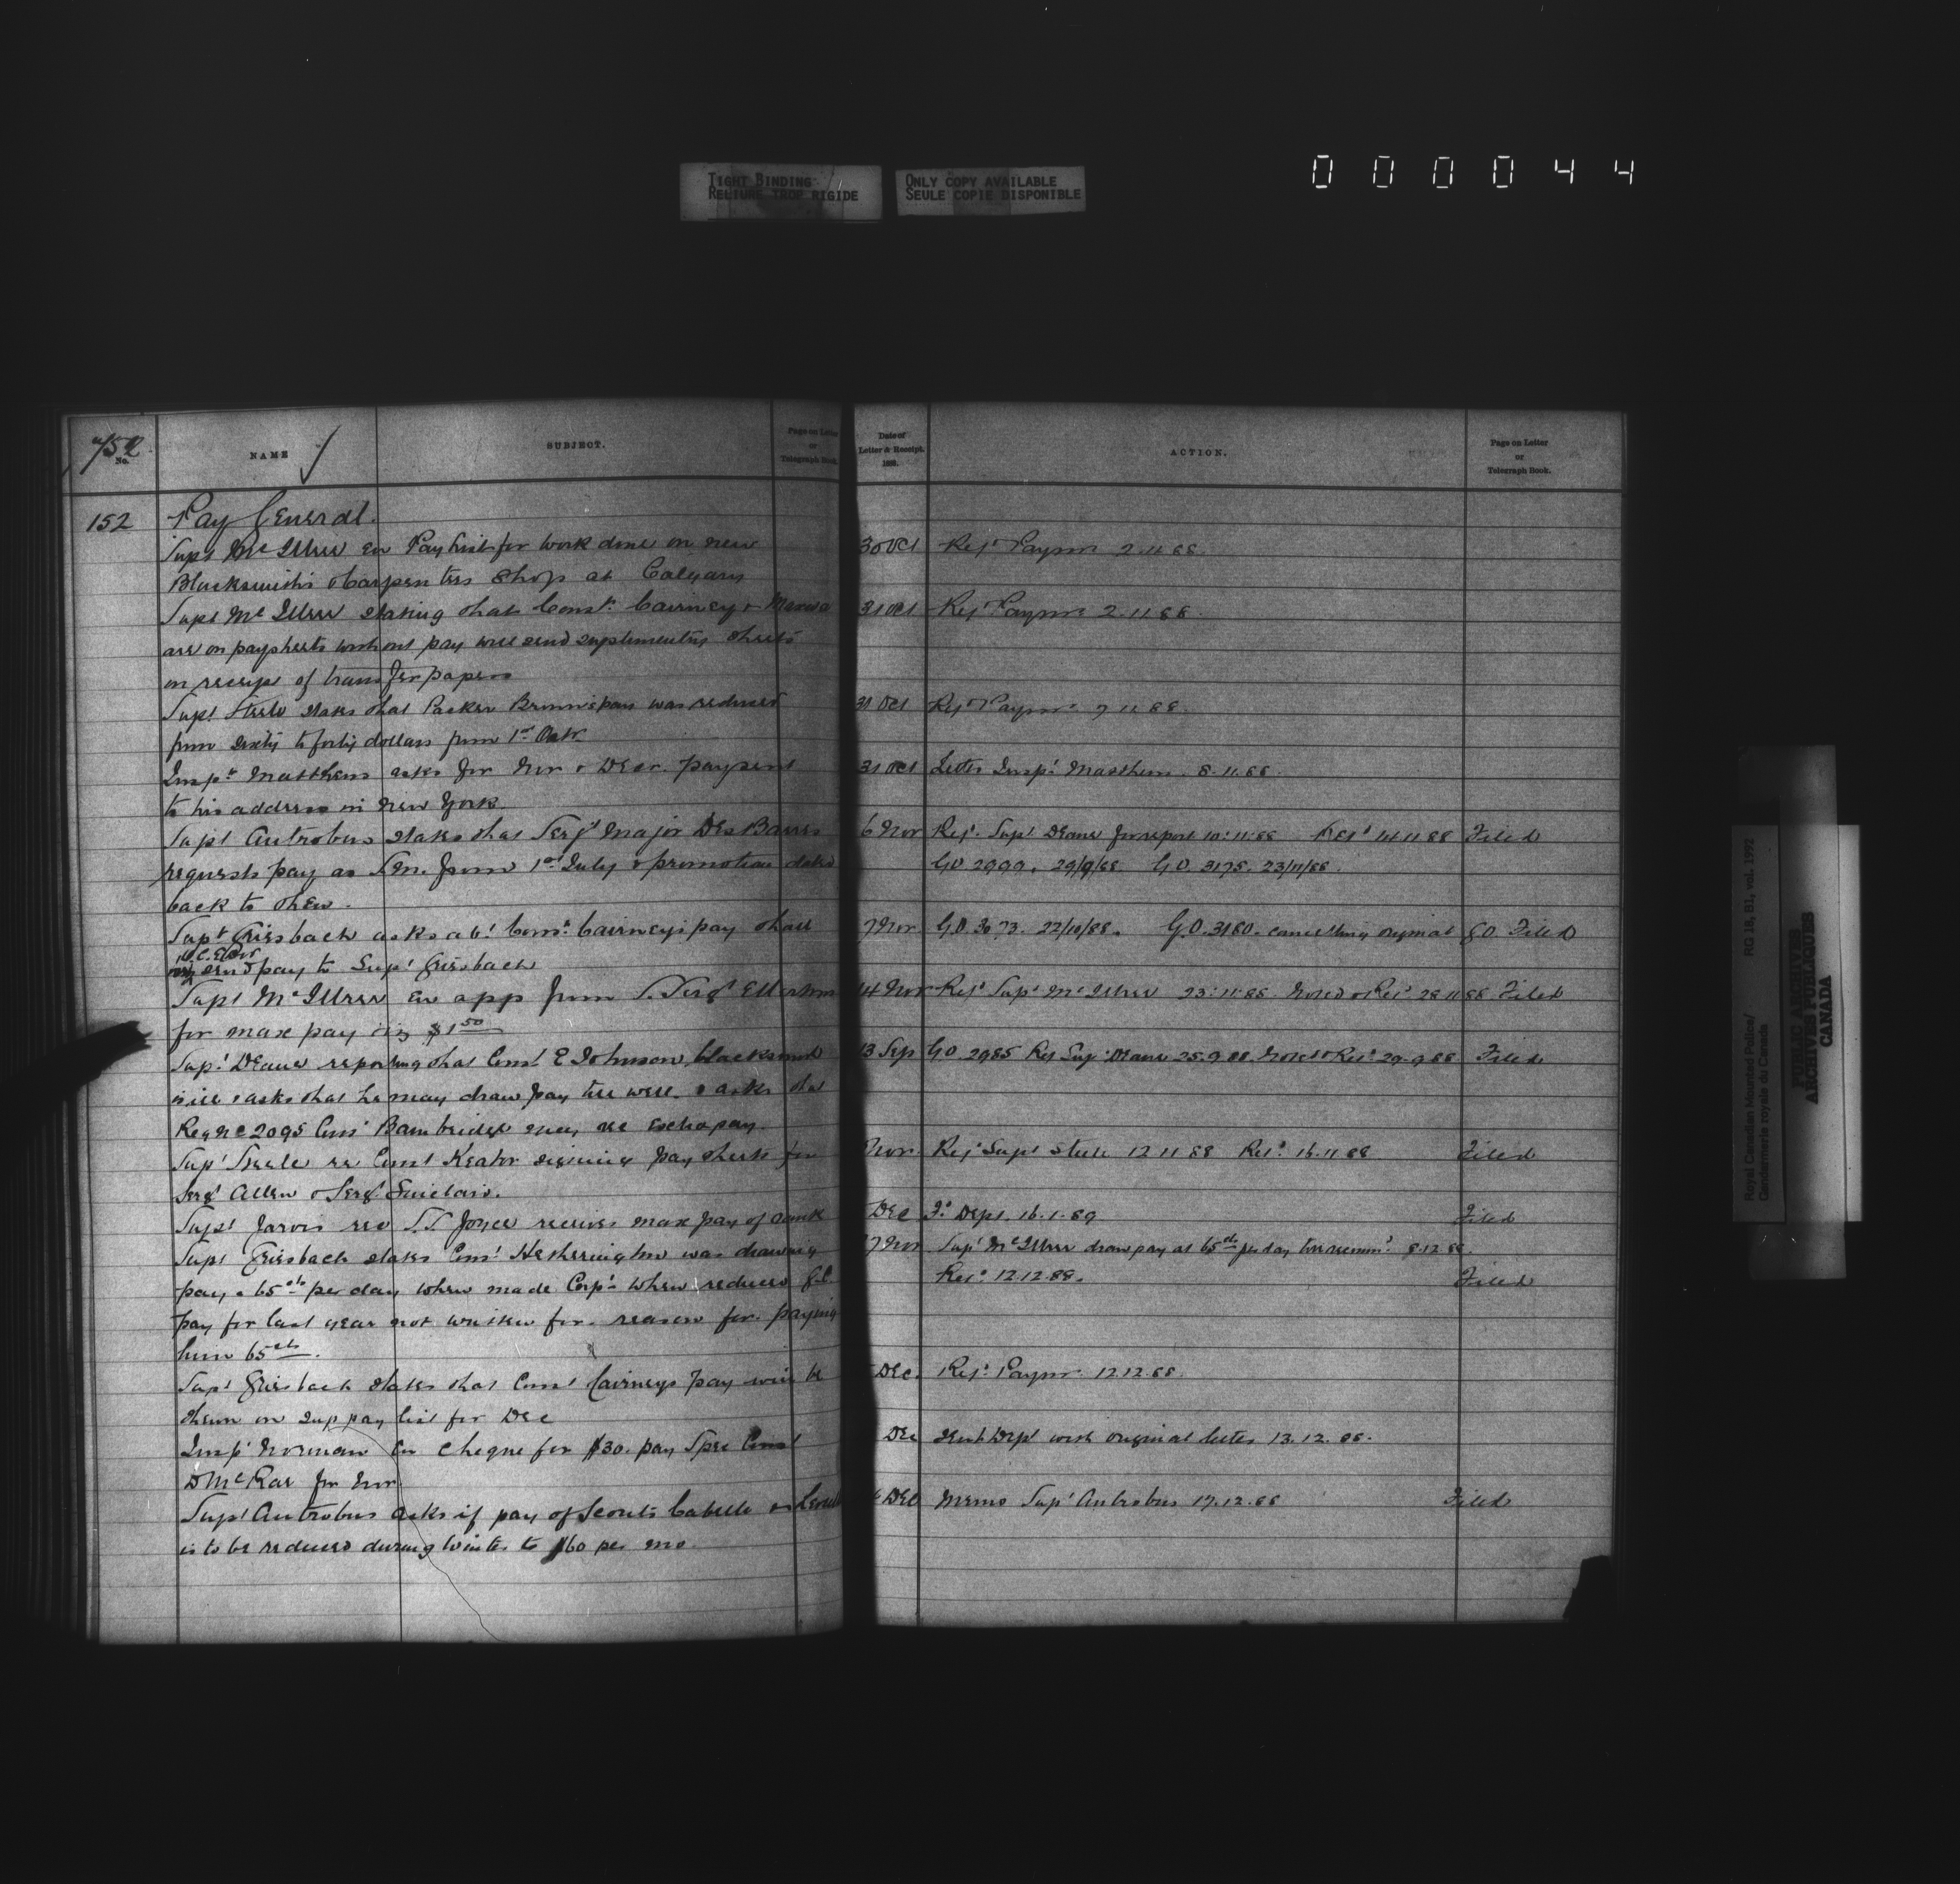 TIGHT BINDING
RELIURE TROP RIGIDE
ONLY COPY AVAILABLE
SEULE COPIE DISPONIBLE
000044
152
No.
NAME
SUBJECT.
Page on Letter
or
Telegraph Book.
152 Pay General.
Supt McIllree en Pay list for work done on new
Blacksmith's & Carpenters Shop at Calgary
Supt McIllree stating that Const. Cairney &
are on paysheets without pay will send suplementary sheets
on receipt of transfer papers
Supt Steele states that Packer pay was reduced
from sixty to forty dollars from 1st
Inspr Matthews asks for Nov & Decr. pay sent
to his address in New York.
Supt Antrobus states that Sergt Major Des Barres
requests pay as from 1st July & promotion dated
back to then.
Supt Griesbach asks abt Const Cairneys pay shall
send pay to Supt Griesbach
Supt McIllree en app from S. Sergt
for max pay viz $1 50
Supt Deane reporting that Const E Johnson, blacksmith
is ill & asks that he may draw pay till well & asks that
Reg No 2095 Const Bambridge may re extra pay.
Supt Steele re Const Keator signing pay sheets for
Sergt Allen & Sergt Sinclair.
Supt Jarvis rec S.S. Joyce receives max pay of rank
Supt Griesbach states Const Hetherington was drawing
pay @ 65 cts per day when made Corpl when reduced G.C.
pay for last year not written for. reason for paying
him 65 cts.
Supt Griesbach states that Const Cairneys pay will be
shewn on sup pay list for Dec
Inspr Norman en cheque for $30. pay Spec Const
D McRae for Nov
Supt Antrobus asks if pay of Scouts &
is to be reduced during Winter to $60 per mo.
Date of
Letter & Receipt.
188
ACTION.
Page on Letter
or
Telegraph Book.
30 Oct Refd Paymr 2.11.88.
31 Oct Refd Paymr 2.11.88
31 Oct Refd Paymr 7.11.88.
31 Oct Letter Inspr Matthews. 8.11.88.
6 Nov Refd Supt Deane for report 10.11.88 Retd 14.11.88 Filed
G.O 2999. 29/9/88. G.O. 3175. 23/11/88.
7 Nov G.O. 3073. 22/10/88. G.O. 3180. cancelling original G.O. Filed
14 Nov Refd Supt McIllree 23.11.88. Noted & Retd 28.11.88 Filed
13 Sep G.O 2985 Ref Supt Deane 25.9.88. Noted & Retd 29.9.88 Filed
Nov. Refd Supt Steele 12.11.88 Retd 16.11.88 Filed
Dec To Dept. 16.1.89 Filed
7 Nov Supt McIllree draw pay at 65 cts per day 8.12.88.
Retd 12.12.88. Filed
Dec. Refd Paymr 12.12.88.
Dec Sent Dept with original letter 13.12.88.
Dec Memo Supt Antrobus 17.12.88 Filed
Royal Canadian Mounted Police/ RG 18, B1, vol. 1992
Gendarmerie royale du Canada
PUBLIC ARCHIVES
ARCHIVES PUBLIQUES
CANADA